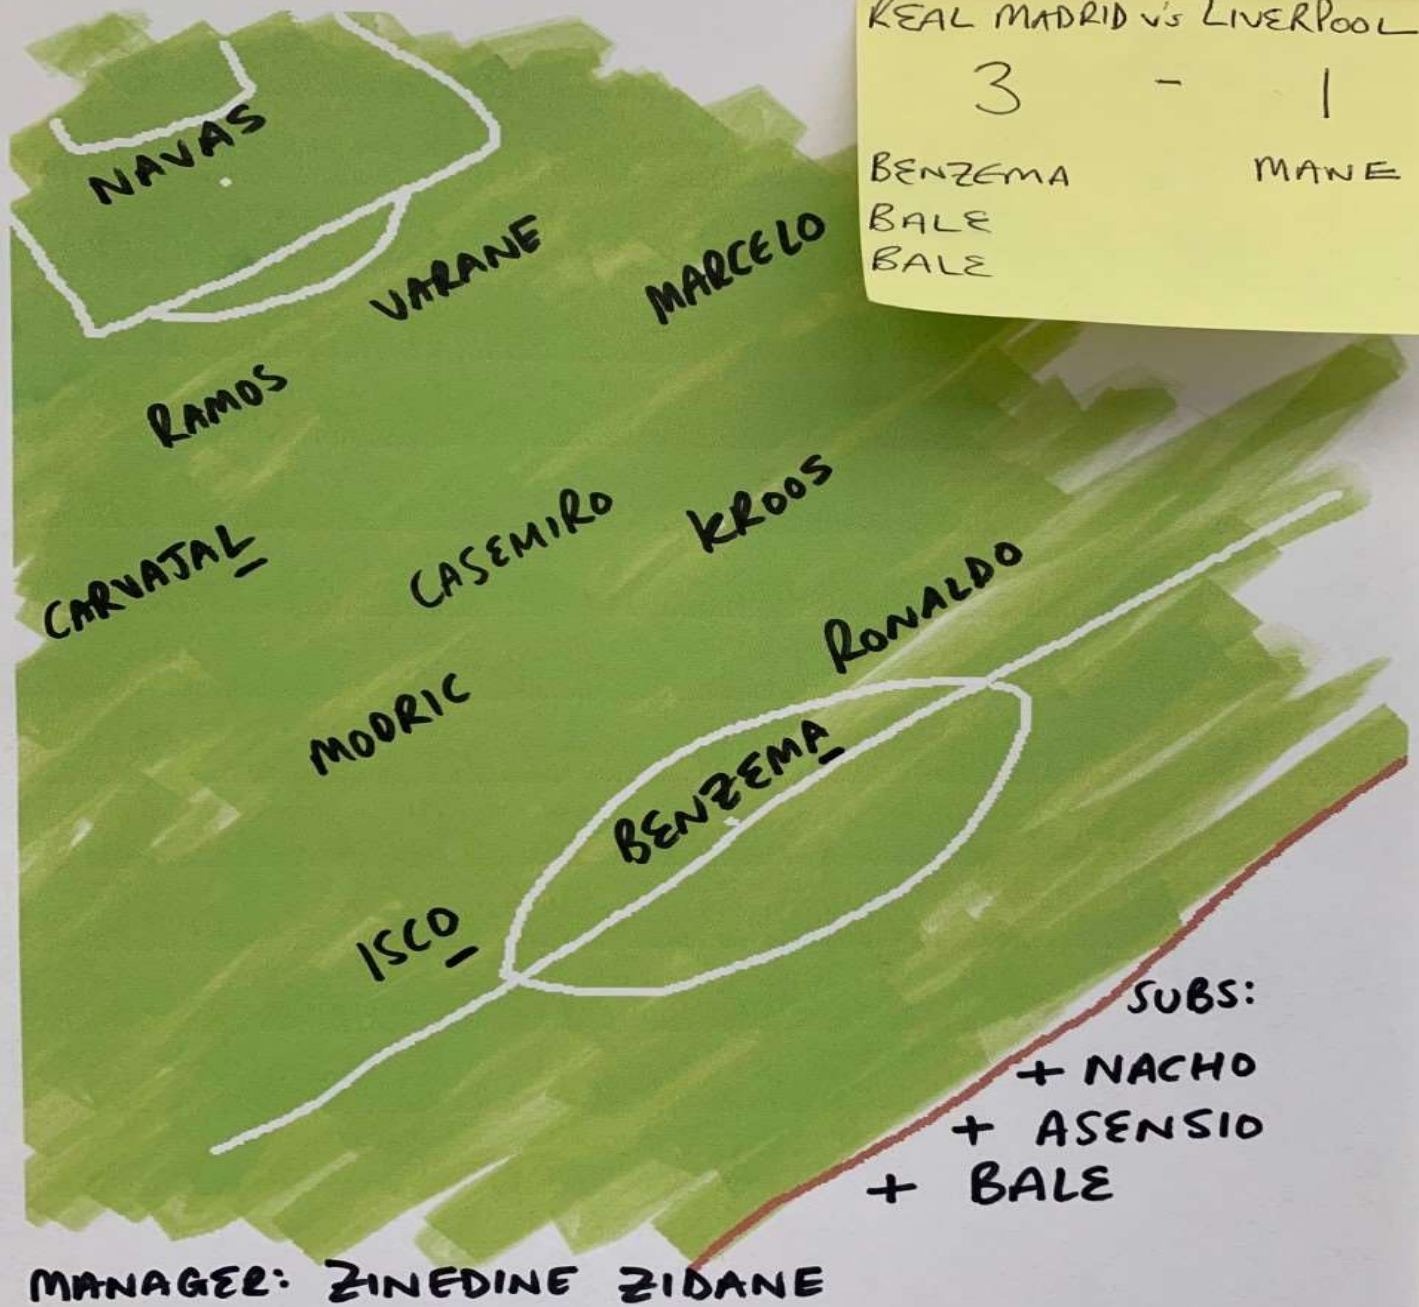 REAL MADRID v's LIVERPOOL
3 - 1
BENZEMA MANE
BALE
BALE
NAVAS
VARANE
MARCELO
RAMOS
CARVAJAL
CASEMIRO
KROOS
MODRIC
RONALDO
BENZEMA
ISCO
SUBS:
+ NACHO
+ ASENSIO
+ BALE
MANAGER: ZINEDINE ZIDANE